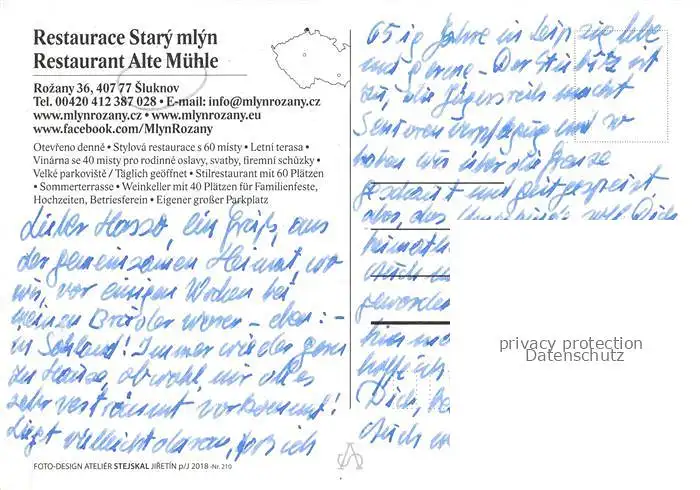 Restaurace Starý mlýn
Restaurant Alte Mühle
Rožany 36, 407 77 Šluknov
Tel. 00420 412 387 028 • E-mail: info@mlynrozany.cz
www.mlynrozany.cz • www.mlynrozany.eu
www.facebook.com/MlynRozany
Otevřeno denně • Stylová restaurace s 60 místy • Letní terasa •
Vinárna se 40 místy pro rodinné oslavy, svatby, firemní schůzky •
Velké parkoviště / Täglich geöffnet • Stilrestaurant mit 60 Plätzen
• Sommerterrasse • Weinkeller mit 40 Plätzen für Familienfeste,
Hochzeiten, Betriesferein • Eigener großer Parkplatz
Lieber Hasso, ein Gruß, aus
der gemeinsamen Heimat, wo
wir, vor einigen Wochen bei
meinem Bruder waren – eben :-
in Sohland! Immer wieder gern
zu Hause, obwohl mir alles
sehr verträumt vorkommt!
Liegt vielleicht daran, daß ich
FOTO-DESIGN ATELIÉR STEJSKAL JIŘETÍN p/J 2018 -Nr. 210
65 ig Jahre in Leipzig lebe
und gerne – Der ist
zu, die macht
Senioren verpflegung und so
haben wir über die Grenze
geschaut und gut gespeist
also, das soll Dich
heimatl
Euch
geworden
hier
hoffe ich
Dich,
Euch
privacy protection
Datenschutz